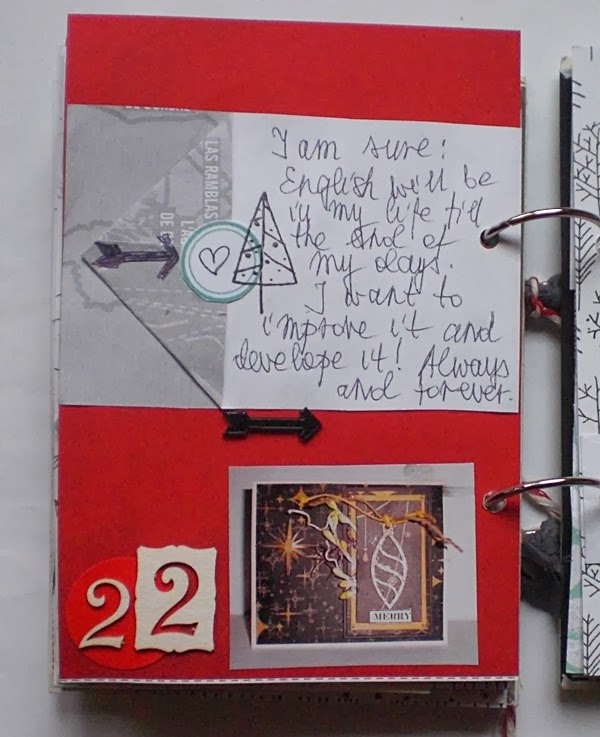 LAS RAMBLAS
I am sure:
English will be
in my life till
the end of
my days.
I want to
improve it and
develope it! Always
and forever.
22
MERRY